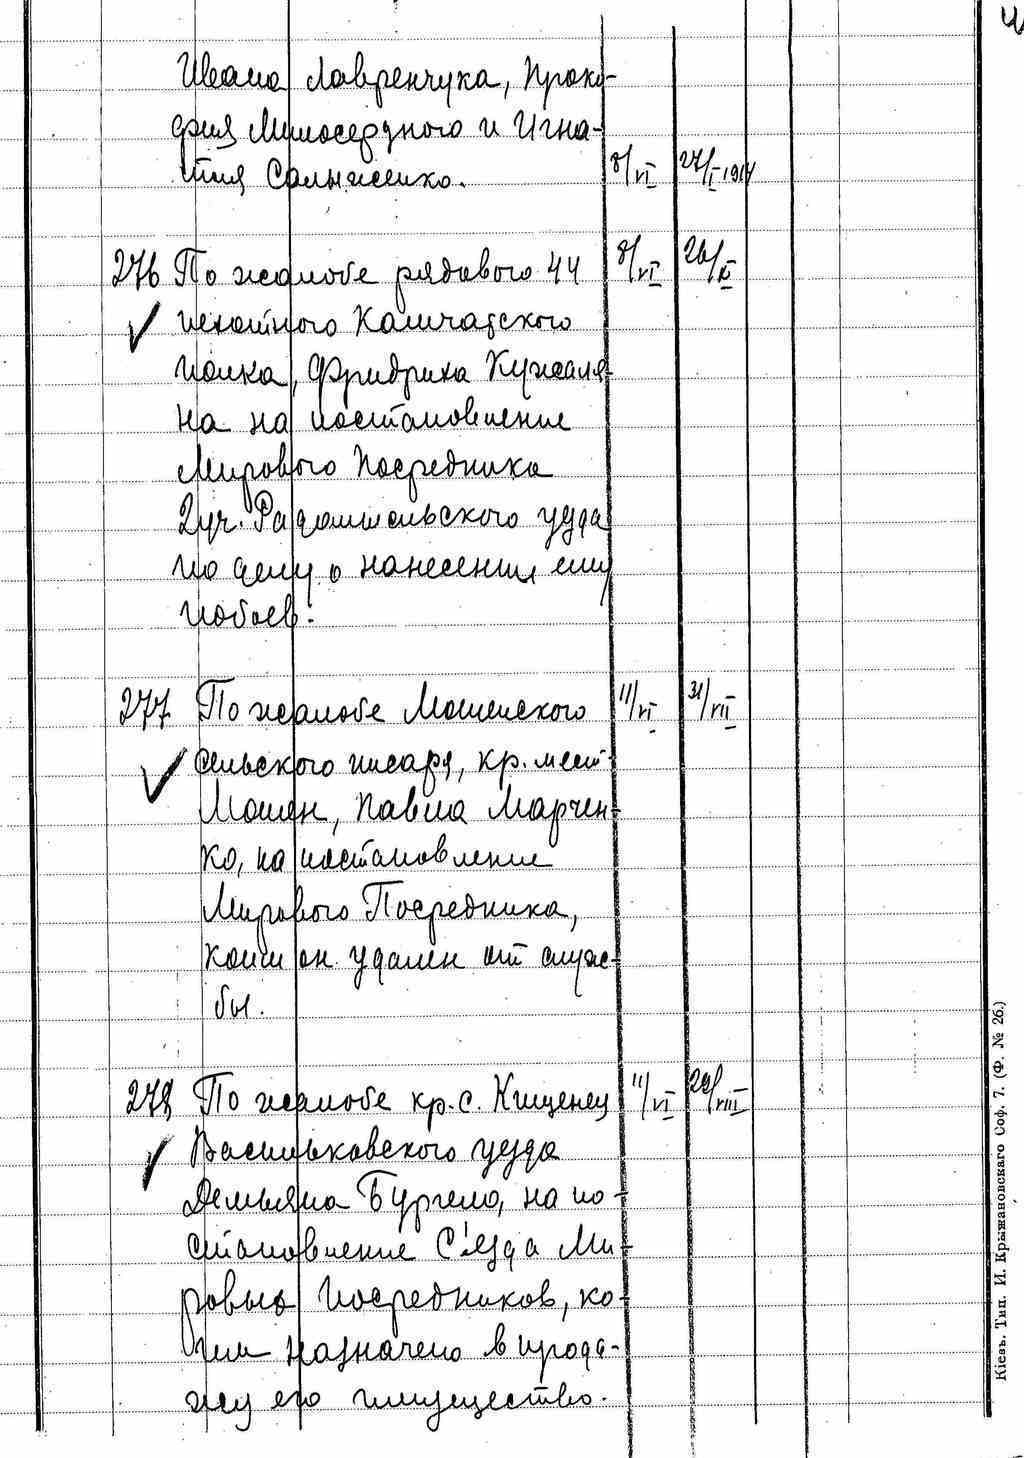 Ивана Лавренчука, Проко-
фия Милосердного и Игна-
тия Сольниченко. 8/VI 27/I 1914
276 По жалобе рядового 44 8/VI 26/XI
пехотного Камчатского
полка, Фридриха Кужаля-
на на постановление
Мирового Посредника
2 уч. Радомысльского уезда
по делу о нанесении ему
побоев.
277 По жалобе Мошенского 11/VI 31/VII
сельского писаря, кр. мест.
Мошен, Павла Марчен-
ко, на постановление
Мирового Посредника,
коим он удален от служ-
бы.
278 По жалобе кр. с. Кищенец 11/VI 29/VIII
Васильковского уезда
Демьяна Бургело, на по-
становление С'езда Ми-
ровых Посредников, ко-
им назначено в прода-
жу его имущество.
Кіевъ. Тип. И. Крыжановскаго Соф. 7. (Ф. № 26.)